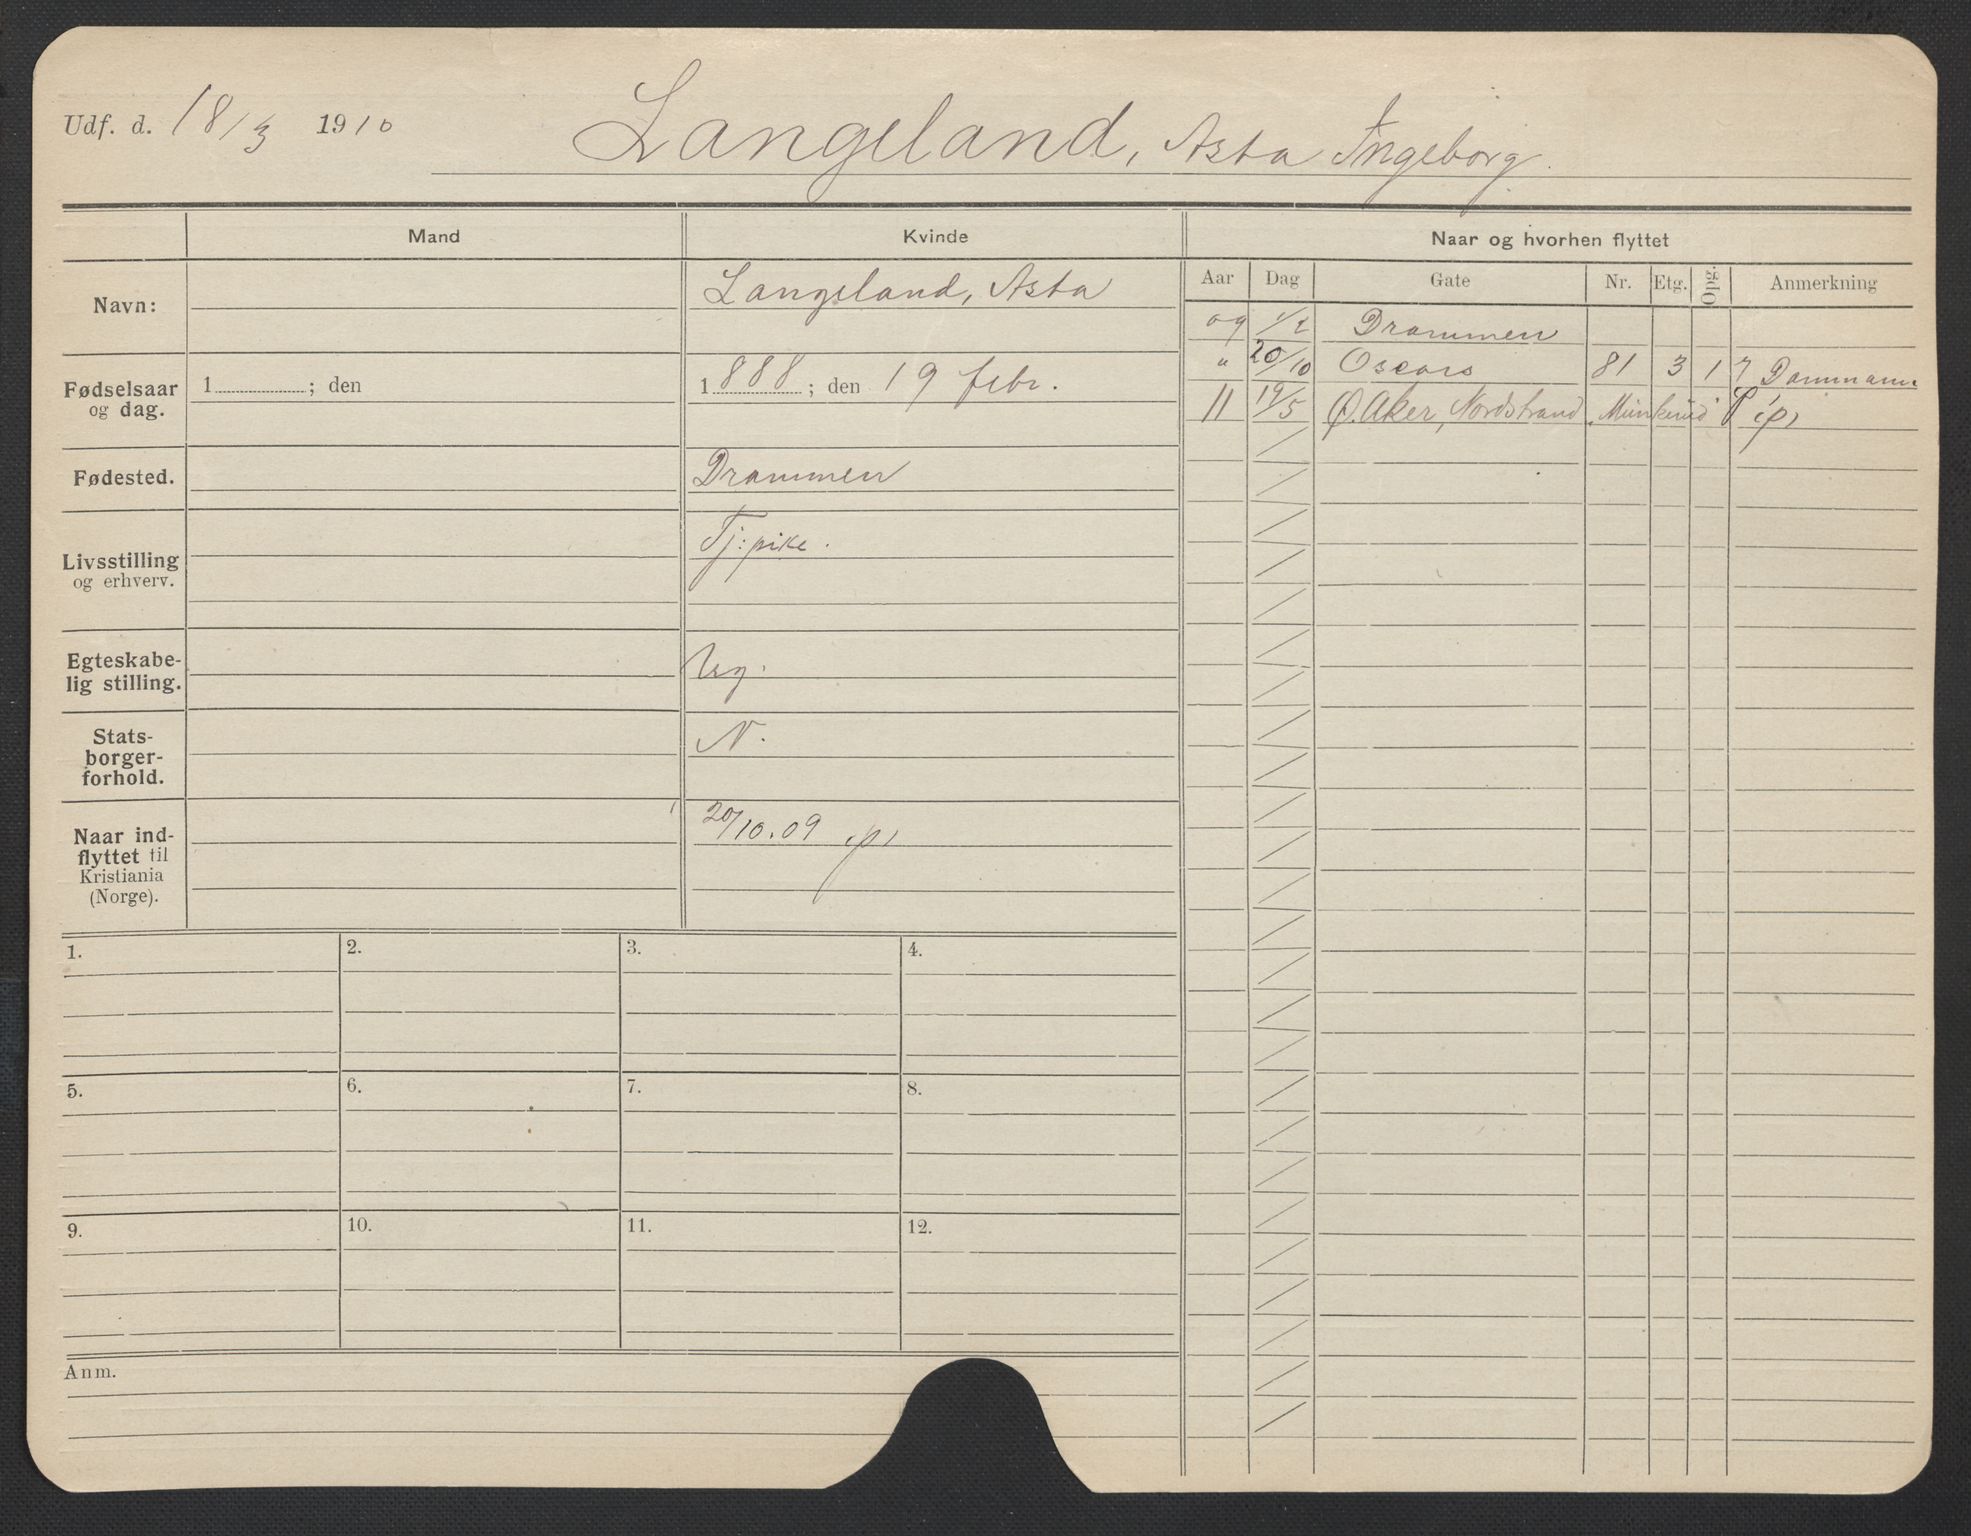 Udf. d. 18/3 1910 Langeland, Asta Ingeborg.
Mand Kvinde Naar og hvorhen flyttet
Aar Dag Gate Nr. Etg. Opg. Anmerkning
Navn: Langeland, Asta
09 1/2 Drammen
" 20/10 Oscars 81 3 1 Dammann
11 19/5 Ø. Aker, Nordstrand, Munkerud p,
Fødselsaar
og dag.
1 ; den
1888 ; den 19 febr.
Fødested. Drammen
Livsstilling
og erhverv.
Tj: pike.
Egteskabe-
lig stilling.
Ug.
Stats-
borger-
forhold.
N.
Naar ind-
flyttet til
Kristiania
(Norge).
20/10.09 p,
1. 2. 3. 4.
5. 6. 7. 8.
9. 10. 11. 12.
Anm.